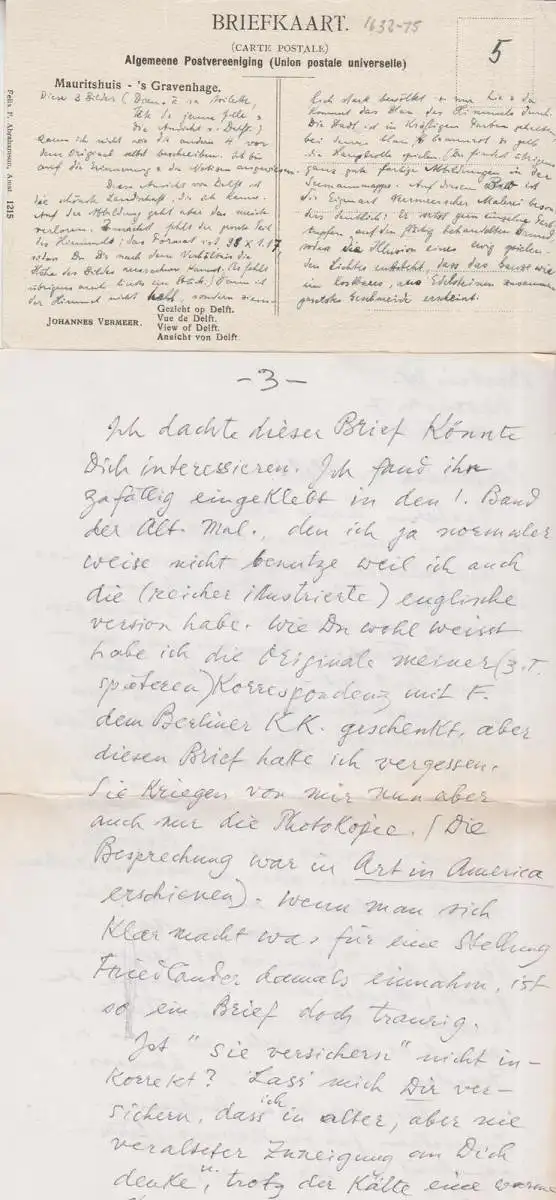 BRIEFKAART.
1632-75
(CARTE POSTALE)
Algemeene Postvereeniging (Union postale universelle)
5
Felix P. Abrahamson, Amst. 1215
Mauritshuis - 's Gravenhage.
Diese 3 Bilder (Diana
die Ansicht v. Delft.)
kann ich nicht wie die andern 4 vor
dem Original selbst beschreiben. Ich bin
auf die Erinnerung u. die Notizen angewiesen.
Diese Ansicht von Delft ist
die schönste Landschaft, die ich kenne.
Auf der Abbildung geht aber das meiste
verloren. Zunächst fehlt der grösste Teil
des Himmels; das Format ist 98 x 1.17,
sodass Du Dir nach dem Verhältnis die
Höhe des Bildes ausrechnen kannst. (Es fehlt
übrigens auch links ein Stück.) Dann ist
der Himmel nicht hell, sondern ziem-
JOHANNES VERMEER.
Gezicht op Delft.
Vue de Delft.
View of Delft.
Ansicht von Delft.
lich stark bewölkt u. nur hie u. da
kommt das Blau des Himmels durch.
Die Stadt ist in kräftigen Farben
bei denen blau, braunrot u. gelb
die Hauptrolle spielen (Du findest übrigens
ganz gute farbige Abbildungen in der
Seemannmappe. Auf diesem Bild ist
die Eigenart Vermeerscher Malerei beson-
ders deutlich: Er setzt gern einzelne Farb-
tupfen auf den farbig behandelten Grund
sodass die Illusion eines ewig spielen-
den Lichtes entsteht, dass das Ganze wie
ein kostbares, aus Edelsteinen zusammen-
gesetztes Geschmeide erscheint.
-3-
Ich dachte dieser Brief könnte
Dich interessieren. Ich fand ihn
zufällig eingeklebt in den 1. Band
der Alt. Mal., den ich ja normaler
weise nicht benutze weil ich auch
die (reicher illustrierte) englische
version habe. Wie Du wohl weisst
habe ich die Originale meiner (z.T.
späteren) Korrespondenz mit F.
dem Berliner KK. geschenkt, aber
diesen Brief hatte ich vergessen.
Sie kriegen von mir nun aber
auch nur die Photokopie. (Die
Besprechung war in Art in America
erschienen). Wenn man sich
klar macht was für eine Stellung
Friedländer damals einnahm, ist
so ein Brief doch traurig.
Ist "Sie versichern" nicht in-
korrekt? Lass mich Dir ver-
sichern, dass ich in alter, aber nie
veralteter Zuneigung an Dich
denke u. trotz der Kälte eine warme